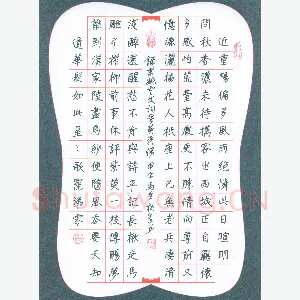 近重陽偏多風雨絕憐此日暄明
問秋香濃未待攜客出西城正自羈懷
多感怕荒臺高處更不勝情向尊前又
憶漉酒插花人衹座上已無老兵淒清
淺醉還醒愁不肯與詩平記長楸走馬
雕弓笮柳前事休評紫萸一枝傳賜夢
誰到漢家陵盡烏紗便隨風去要天知
道華髮如此星星歌罷涕零